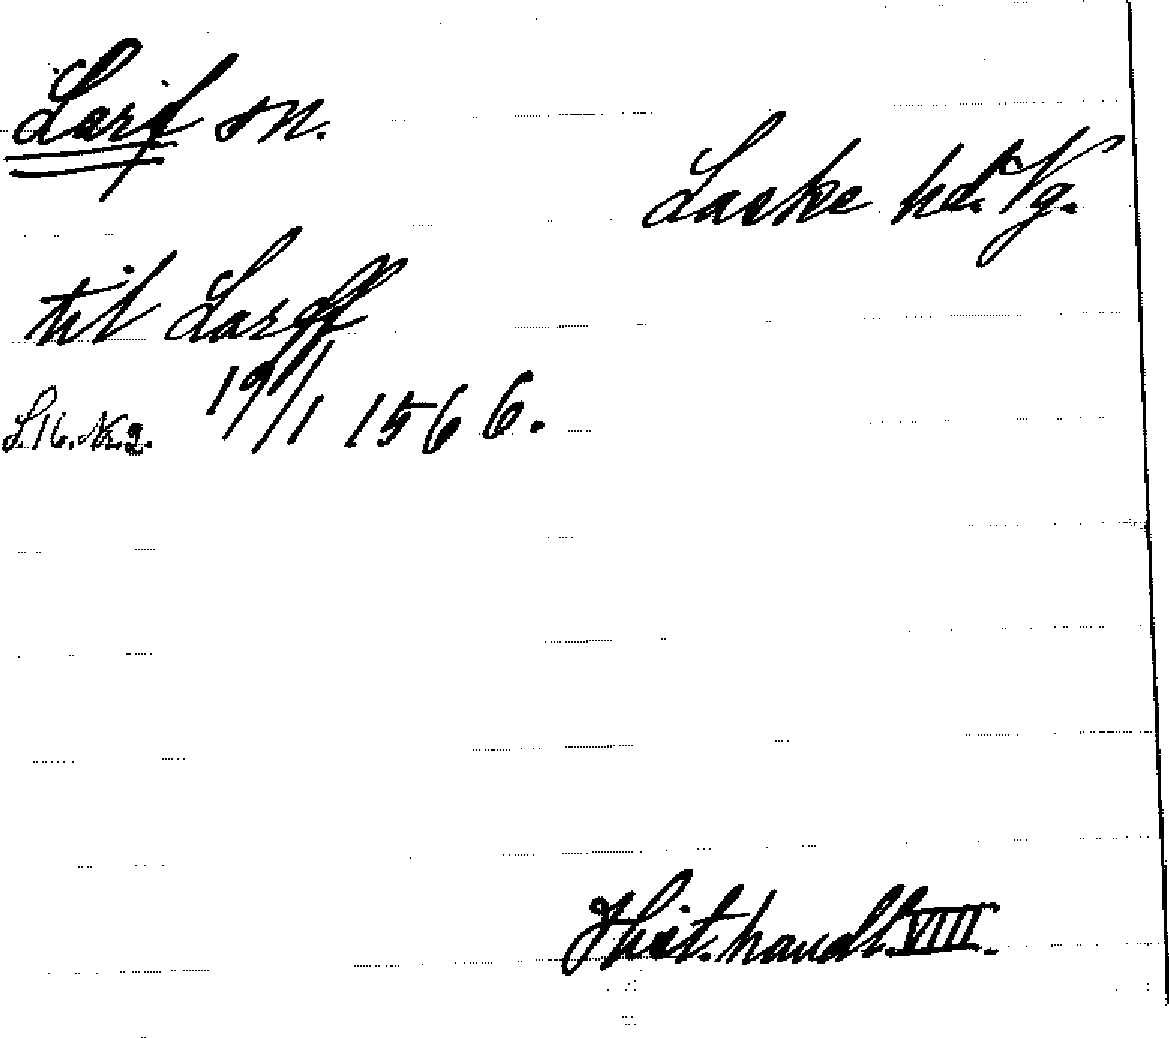 Larf sn.
Laske hd. Vg.
til Larff
19/1 1566.
S. 16. N:2.
Hist. handl. VIII.